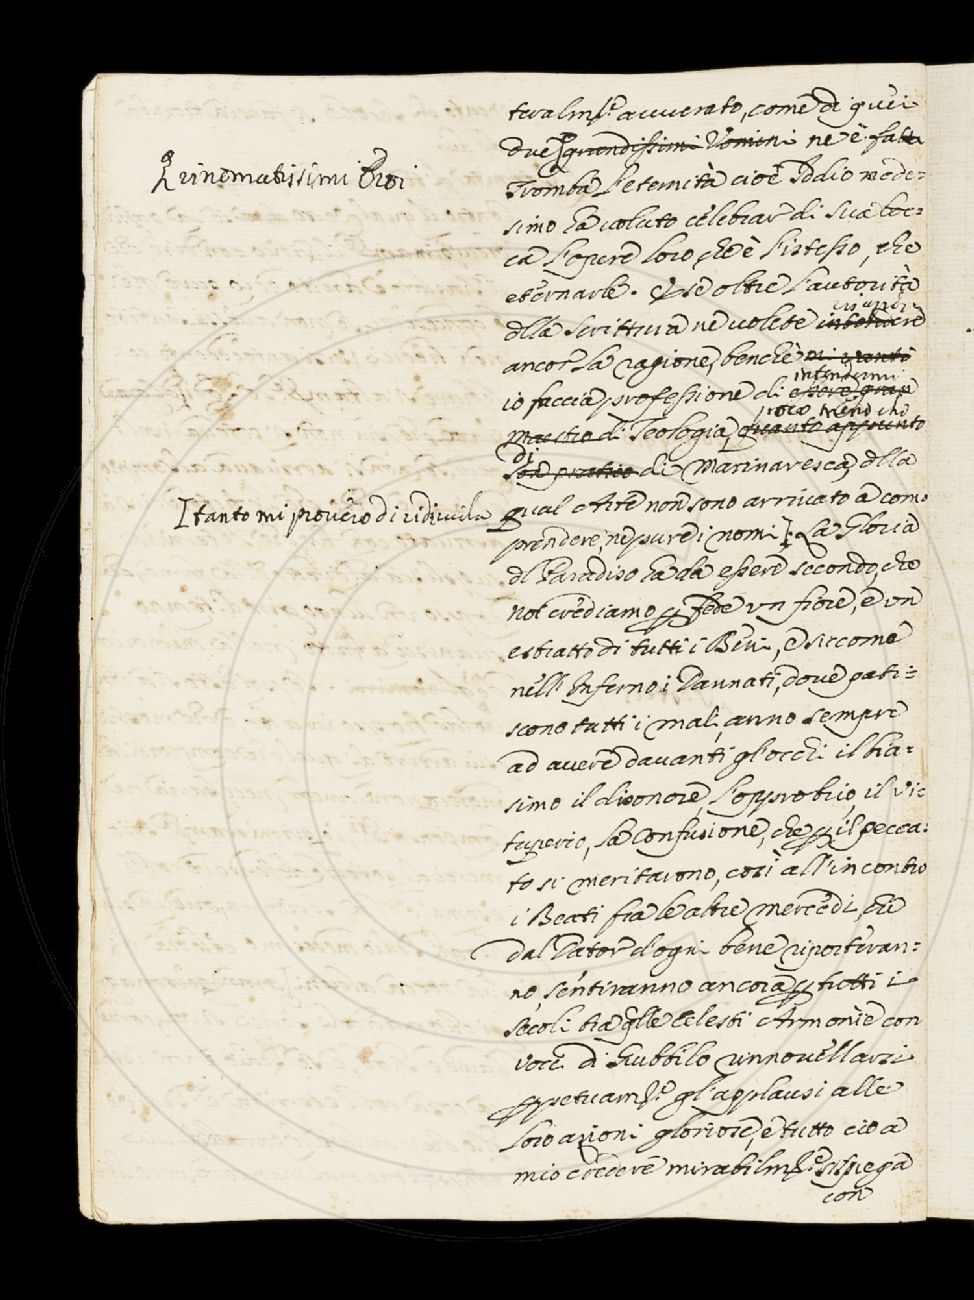 teralm.te avverato, come di quei
due grandissimi Uomini ne è fatta
rinomatissimi Eroi
Tromba l'eternità cioè Iddio mede=
simo ha voluto celebrar di sua boc=
ca l'opere loro, che è l'istesso, che
eternarle. E se oltre l'autorità
dlla Scrittura ne volete
ancor la ragione, benchè mi vanto
intendermi
io faccia professione di essere gran
poco meno che
maestro di Teologia, quanto appunto
di
pratico di Marinaresca, dlla
[tanto mi provero di ridirvela
qual Arte non sono arrivato a com
prendere, nè pure i nomi]. La Gloria
dl Paradiso ha da essere secondo, che
noi crediamo p fede un fiore, e un
estratto di tutti i Beni, e siccome
nell'Inferno i Dannati, dove pati=
scono tutti i mali, anno sempre
ad avere davanti gl'occhi il bia=
simo il disonore, l'opprobrio, il vi=
tuperio, la confusione, che p il pecca=
to si meritarono, così all'incontro
i Beati fra le altre mercedi, che
dal Dator d'ogni bene riporteran=
no, sentiranno ancora p tutti i
secoli tra qlle celesti Armonie con
voce di Giubbilo rinnovellarsi
ppetuam.te gl'applausi alle
loro azioni gloriose, e tutto ciò a
mio credere mirabilm.te si spiega
con